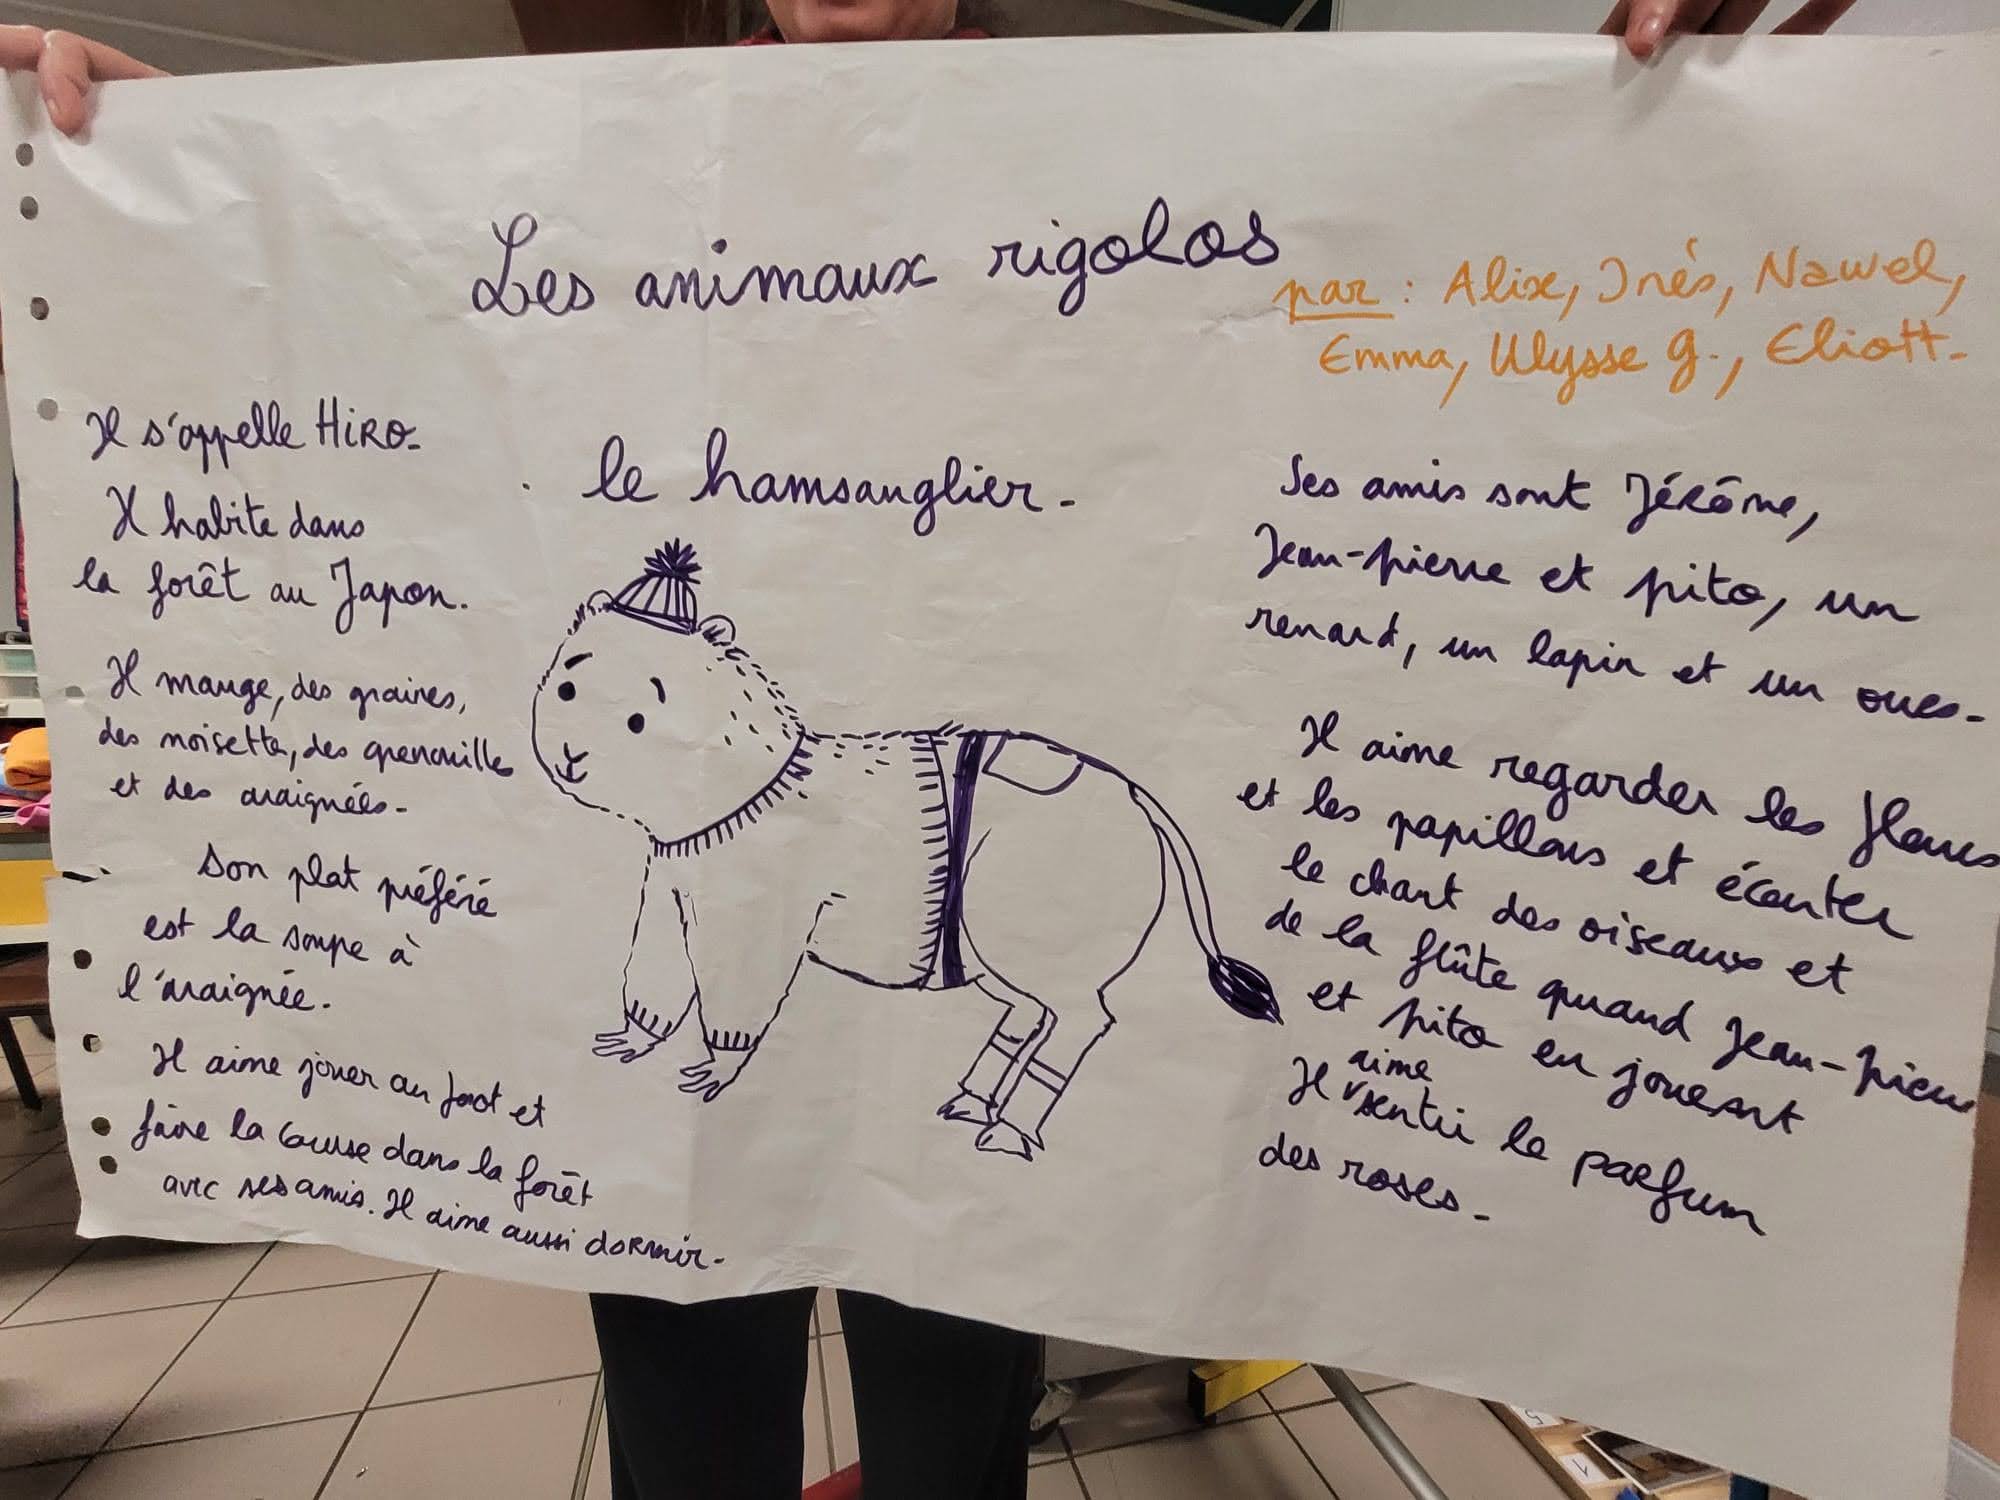 Les animaux rigolos
par : Alix, Inés, Nawel,
Emma, Ulysse G., Eliott.
le hamsanglier.
Il s'appelle HIRO.
Il habite dans
la forêt au Japon.
Il mange, des graines,
des noisette, des grenouille
et des araignées.
Son plat préféré
est la soupe à
l'araignée.
Il aime jouer au foot et
faire la course dans la forêt
avec ses amis. Il aime aussi dormir.
Ses amis sont Jérôme,
Jean-Pierre et pito, un
renard, un lapin et un oues.
Il aime regarder les fleurs
et les papillons et écouter
le chant des oiseaux et
de la flûte quand Jean-Pierre
et pito en jouent
Il aime sentir le parfum
des roses.
5
1